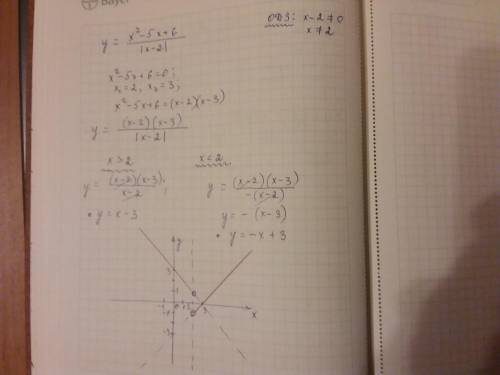 Bayer
y = x²-5x+6 / |x-2|
ОДЗ: x-2≠0
x≠2
x²-5x+6=0;
x₁=2, x₂=3;
x²-5x+6=(x-2)(x-3)
y = (x-2)(x-3) / |x-2|
x>2 x<2
y = (x-2)(x-3) / x-2; y = (x-2)(x-3) / -(x-2)
• y = x-3 y = -(x-3)
• y = -x+3
y
3
1
0 1 3 x
-1
-3